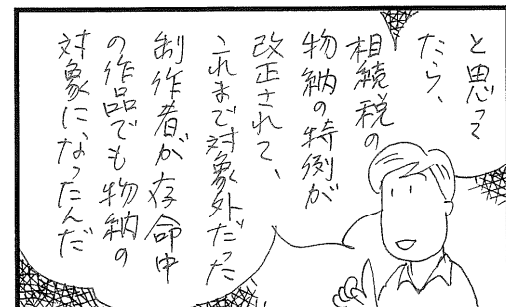 と思って
たら、
相続税の
物納の特例が
改正されて、
これまで対象外だった
制作者が存命中
の作品でも物納の
対象に、なったんだ